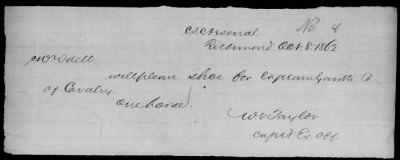 No 4
CS Arsenal
Richmond Oct 8. 1862
Mr Odell
will please shoe for Captain Gantts Co
of Cavalry
one horse.
Wm Taylor
Capt & Co Off